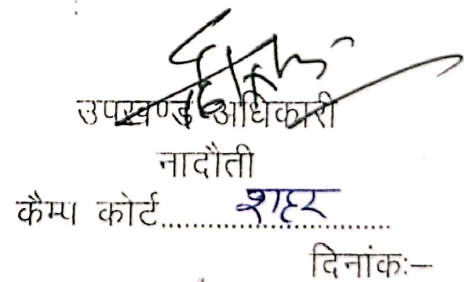 उपखण्ड अधिकारी
नादौती
कैम्प कोर्ट.......शहर.......
दिनांकः–